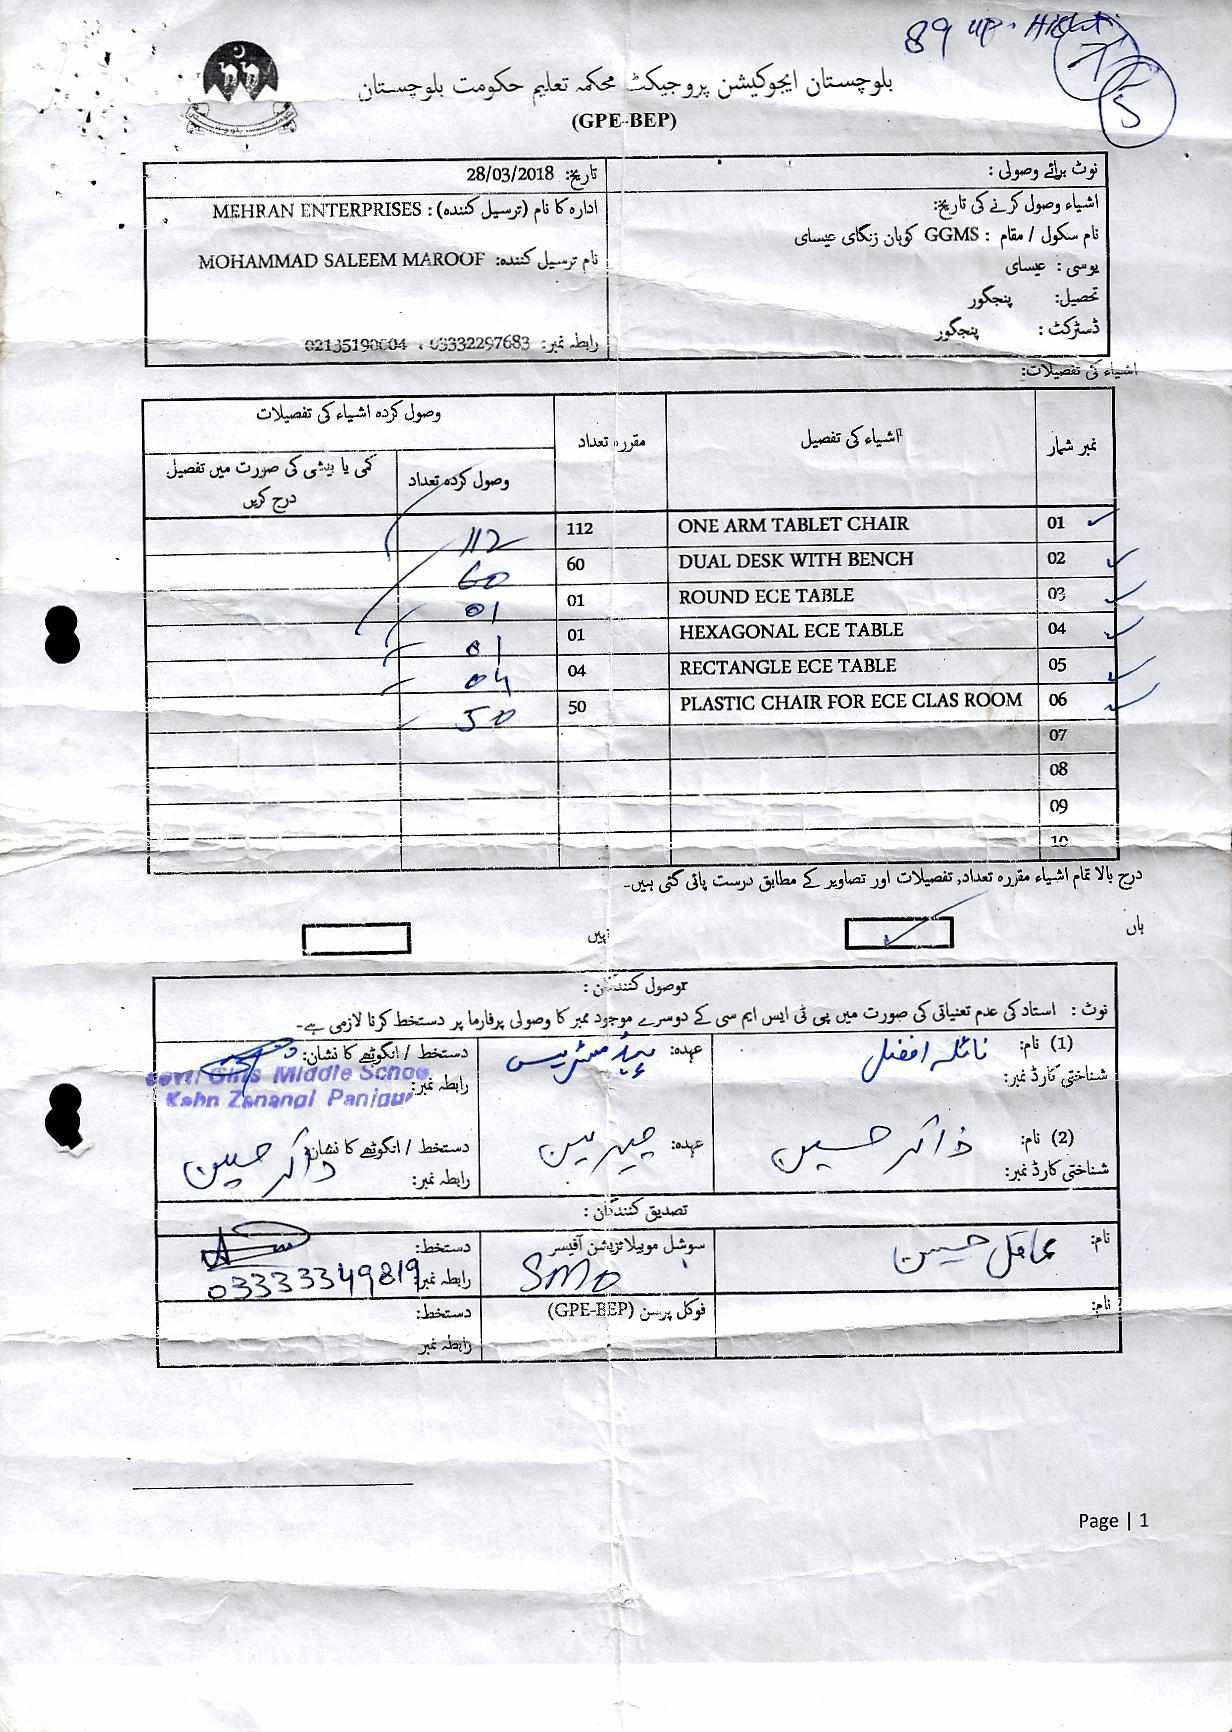 89 up. Hisht
7
5
بلوچستان ایجوکیشن پروجیکٹ محکمہ تعلیم حکومت بلوچستان
(GPE-BEP)
نوٹ برائے وصولی :
تاریخ: 28/03/2018
اشیاء وصول کرنے کی تاریخ:
نام سکول / مقام : GGMS کوہان زنگای عیسای
یوسی : عیسای
تحصیل: پنجگور
ڈسٹرکٹ : پنجگور
ادارہ کا نام (ترسیل کنندہ) : MEHRAN ENTERPRISES
نام ترسیل کنندہ: MOHAMMAD SALEEM MAROOF
رابطہ نمبر: 03332297683 ، 02135190004
اشیاء کی تفصیلات:
نمبر شمار اشیاء کی تفصیل مقررہ تعداد وصول کردہ اشیاء کی تفصیلات
وصول کردہ تعداد کمی یا بیشی کی صورت میں تفصیل درج کریں
01 ONE ARM TABLET CHAIR 112 112
02 DUAL DESK WITH BENCH 60 60
03 ROUND ECE TABLE 01 01
04 HEXAGONAL ECE TABLE 01 01
05 RECTANGLE ECE TABLE 04 04
06 PLASTIC CHAIR FOR ECE CLAS ROOM 50 50
07
08
09
10
درج بالا تمام اشیاء مقررہ تعداد, تفصیلات اور تصاویر کے مطابق درست پائی گئی ہیں۔
ہاں نہیں
وصول کنندگان :
نوٹ : استاد کی عدم تعنیاتی کی صورت میں پی ٹی ایس ایم سی کے دوسرے موجود ممبر کا وصولی پرفارما پر دستخط کرنا لازمی ہے۔
(1) نام: نائلہ افضل عہدہ: ہیڈ مسٹریس دستخط / انگوٹھے کا نشان:
شناختی کارڈ نمبر: رابطہ نمبر:
Govt: Girls Middle School
Kahn Zanangi Panjgur
(2) نام: ذاکر حسین عہدہ: چیرمین دستخط / انگوٹھے کا نشان: ذاکر حسین
شناختی کارڈ نمبر: رابطہ نمبر:
تصدیق کنندگان :
نام: عاقل حسین سوشل موبیلائزیشن آفیسر دستخط:
SMO رابطہ نمبر: 03333349819
نام: فوکل پرسن (GPE-BEP) دستخط:
رابطہ نمبر
Page | 1